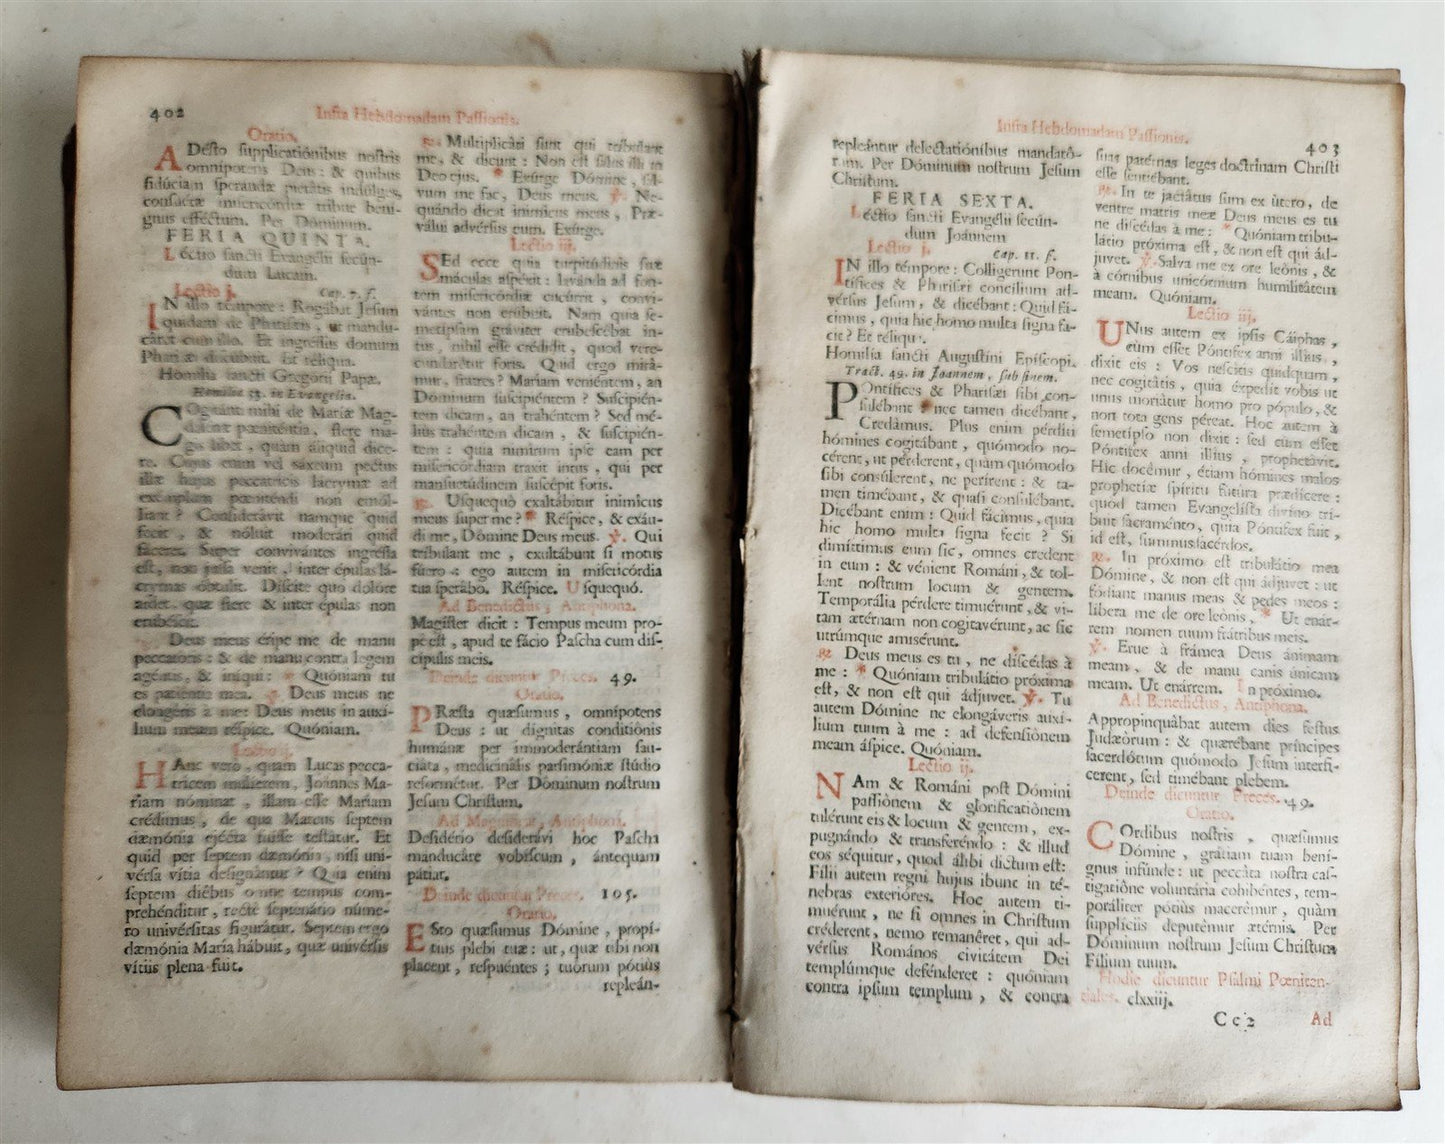 402
Infra Hebdomadam Passionis.
Oratio.
ADésto supplicatiónibus nostris
omnípotens Deus: & quibus
fidúciam sperandæ pietátis indúlges,
consuétæ misericórdiæ tríbue beni-
gnus efféctum. Per Dóminum.
FERIA QUINTA.
Léctio sancti Evangélii secún-
dum Lucam.
Lectio j. Cap. 7. f.
IN illo témpore: Rogábat Jesum
quidam de Pharisǽis, ut mandu-
cáret cum illo. Et ingréssus domum
Pharisǽi discúbuit. Et réliqua.
Homilía sancti Gregórii Papæ.
Homilia 33. in Evangelia.
COgitánti mihi de Maríæ Mag-
dalénæ pœniténtia, flere ma-
gis libet, quàm áliquid dice-
re. Cujus enim vel sáxeum pectus
illæ hujus peccatrícis lácrymæ ad
exémplum pœniténdi non emól-
liant? Considerávit namque quid
fecit, & nóluit moderári quid
fáceret. Super convivántes ingréssa
est, non jussa venit, inter épulas lá-
crymas óbtulit. Díscite quo dolóre
ardet, quæ flere & inter épulas non
erubéscit.
Deus meus éripe me de manu
peccatóris: & de manu contra legem
agéntis, & iníqui: * Quóniam tu
es patiéntia mea. ℣. Deus meus ne
elongéris à me: Deus meus in auxí-
lium meum réspice. Quóniam.
Lectio ij.
HAnc verò, quam Lucas pecca-
trícem mulíerem, Joánnes Ma-
ríam nóminat, illam esse Maríam
crédimus, de qua Marcus septem
dæmónia ejécta fuísse testátur. Et
quid per septem dæmónia, nisi uni-
vérsa vítia designántur? Quia enim
septem diébus omne tempus com-
prehénditur, rectè septenário núme-
ro univérsitas figurátur. Septem ergo
dæmónia María hábuit, quæ univérsis
vítiis plena fuit.
℟. Multiplicáti sunt qui tríbulant
me, & dicunt: Non est salus illi in
Deo ejus. * Exúrge Dómine, sal-
vum me fac, Deus meus. ℣. Ne-
quándo dicat inimícus meus, Præ-
válui advérsus eum. Exúrge.
Lectio iij.
SEd ecce quia turpitúdinis suæ
máculas aspéxit: lavánda ad fon-
tem misericórdiæ cucúrrit, conví-
vántes non erúbuit. Nam quia se-
metípsam gráviter erubescébat in-
tus, nihil esse crédidit, quod vere-
cundarétur foris. Quid ergo mirá-
mur, fratres? Maríam veniéntem, an
Dóminum suscipiéntem? Suscipién-
tem dicam, an trahéntem? Sed mé-
liùs trahéntem dicam, & suscipién-
tem: quia nimírum ipse eam per
misericórdiam traxit intus, qui per
mansuetúdinem suscépit foris.
℟. Usquequò exaltábitur inimícus
meus super me? * Réspice, & exáu-
di me, Dómine Deus meus. ℣. Qui
tríbulant me, exultábunt si motus
fúero: ego autem in misericórdia
tua sperábo. Réspice. Usquequó.
Ad Benedictus, Antiphona.
Magíster dicit: Tempus meum pro-
pè est, apud te fácio Pascha cum dis-
cípulis meis.
Deinde dicuntur Preces. 49.
Oratio.
PRæsta quǽsumus, omnípotens
Deus: ut dígnitas conditiónis
humánæ per immoderántiam sau-
ciáta, medicinális parsimóniæ stúdio
reformétur. Per Dóminum nostrum
Jesum Christum.
Ad Magnificat, Antiphona.
Desidério desiderávi hoc Pascha
manducáre vobíscum, ántequam
pátiar.
Deinde dicuntur Preces. 105.
Oratio.
ESto quǽsumus Dómine, propí-
tius plebi tuæ: ut, quæ tibi non
placent, respuéntes; tuórum pótiùs
repleán-
Infra Hebdomadam Passionis.
403
repleántur delectatiónibus mandató-
rum. Per Dóminum nostrum Jesum
Christum.
FERIA SEXTA.
Léctio sancti Evangélii secún-
dum Joánnem
Lectio j. Cap. 11. f.
IN illo témpore: Collegérunt Pon-
tífices & Pharisǽi concílium ad-
vérsus Jesum, & dicébant: Quid fá-
cimus, quia hic homo multa signa fa-
cit? Et réliqua.
Homilía sancti Augustíni Epíscopi.
Tract. 49. in Joannem, sub finem.
POntífices & Pharisǽi sibi con-
sulébant: nec tamen dicébant,
Credámus. Plus enim pérditi
hómines cogitábant, quómodo no-
cérent, ut pérderent, quàm quómodo
sibi consúlerent, ne perírent: & ta-
men timébant, & quasi consulébant.
Dicébant enim: Quid fácimus, quia
hic homo multa signa fecit? Si
dimíttimus eum sic, omnes credent
in eum: & vénient Románi, & tol-
lent nostrum locum & gentem.
Temporália pérdere timuérunt, & vi-
tam ætérnam non cogitavérunt, ac sic
utrúmque amisérunt.
℟. Deus meus es tu, ne discédas à
me: * Quóniam tribulátio próxima
est, & non est qui ádjuvet. ℣. Tu
autem Dómine ne elongáveris auxí-
lium tuum à me: ad defensiónem
meam áspice. Quóniam.
Lectio ij.
NAm & Románi post Dómini
passiónem & glorificatiónem
tulérunt eis & locum & gentem, ex-
pugnándo & transferéndo: & illud
eos séquitur, quod álibi dictum est:
Fílii autem regni hujus ibunt in té-
nebras exterióres. Hoc autem ti-
muérunt, ne si omnes in Christum
créderent, nemo remanéret, qui ad-
vérsùs Romános civitátem Dei
templúmque defénderet: quóniam
contra ipsum templum, & contra
suas patérnas leges doctrínam Christi
esse sentiébant.
℟. In te jactátus sum ex útero, de
ventre matris meæ Deus meus es tu
ne discédas à me: * Quóniam tribu-
látio próxima est, & non est qui ád-
juvet. ℣. Salva me ex ore leónis, &
à córnibus unicórnium humilitátem
meam. Quóniam.
Lectio iij.
UNus autem ex ipsis Cáiphas,
cùm esset Póntifex anni illíus,
dixit eis: Vos nescítis quidquam,
nec cogitátis, quia éxpedit vobis ut
unus moriátur homo pro pópulo, &
non tota gens péreat. Hoc autem à
semetípso non dixit: sed cùm esset
Póntifex anni illíus, prophetávit.
Hic docémur, étiam hómines malos
prophetíæ spíritu futúra prædícere:
quod tamen Evangelísta divíno trí-
buit sacraménto, quia Póntifex fuit,
id est, summus sacérdos.
℟. In próximo est tribulátio mea
Dómine, & non est qui ádjuvet: ut
fódiant manus meas & pedes meos:
líbera me de ore leónis, * Ut enár-
rem nomen tuum frátribus meis.
℣. Erue à frámea Deus ánimam
meam, & de manu canis únicam
meam. Ut enárrem. In próximo.
Ad Benedictus, Antiphona.
Appropinquábat autem dies festus
Judæórum: & quærébant príncipes
sacerdótum quómodo Jesum interfí-
cerent, sed timébant plebem.
Deinde dicuntur Preces. 49.
Oratio.
COrdibus nostris, quǽsumus
Dómine, grátiam tuam beni-
gnus infúnde: ut peccáta nostra cas-
tigatióne voluntária cohibéntes, tem-
poráliter pótiùs macerémur, quàm
supplíciis deputémur ætérnis. Per
Dóminum nostrum Jesum Christum
Fílium tuum.
Hodie dicuntur Psalmi Pœniten-
tiales. clxxiij.
Cc2 Ad